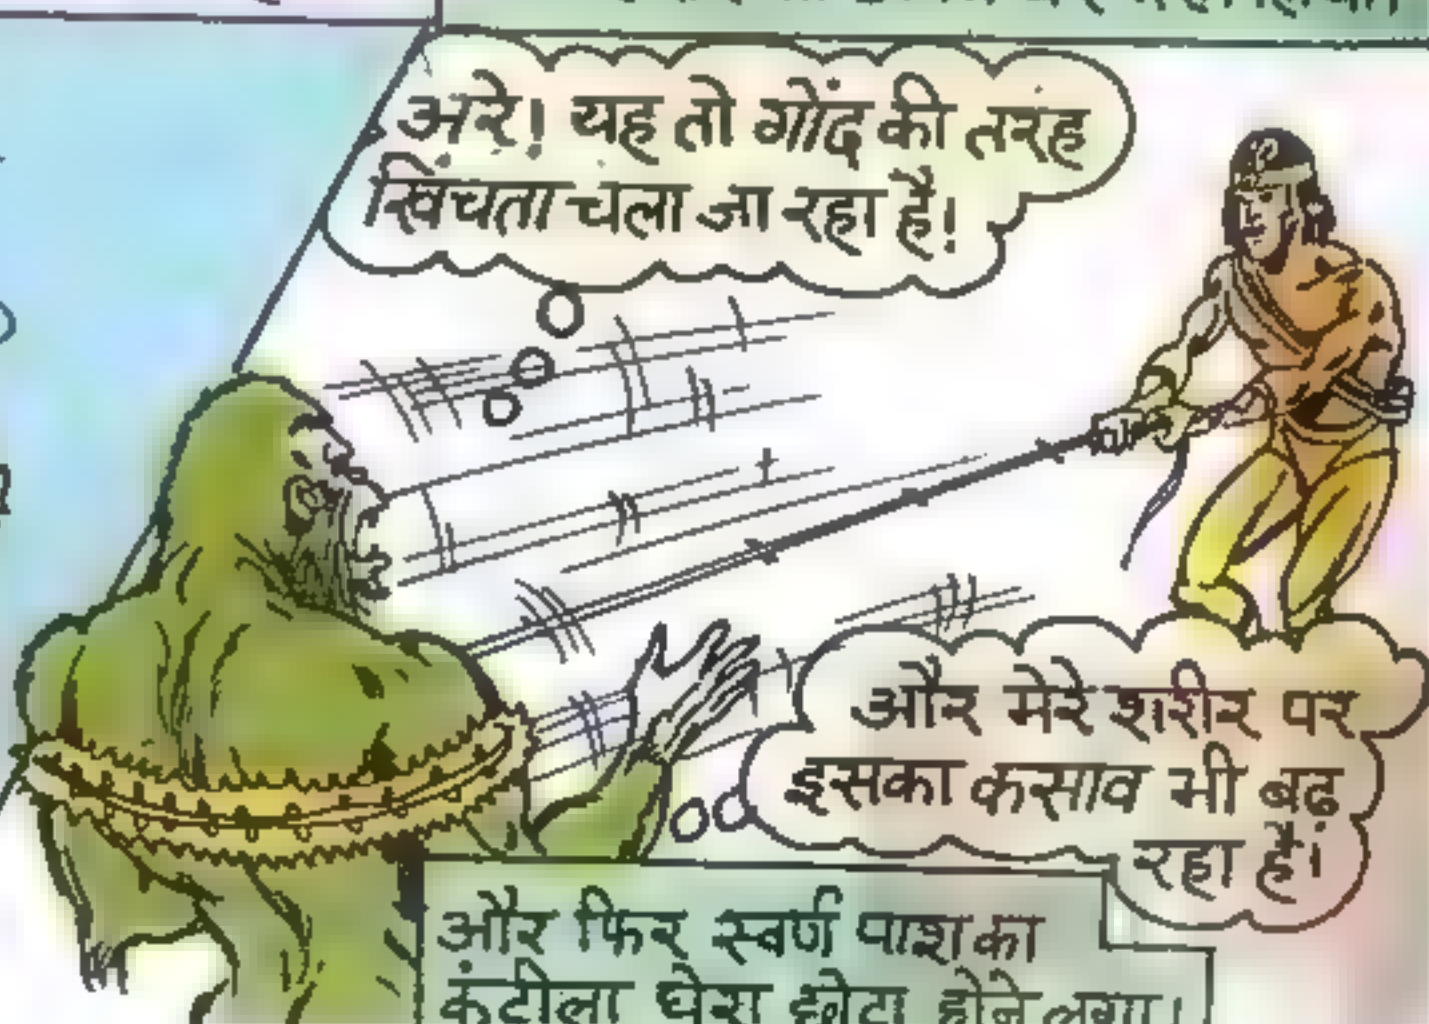 अरे! यह तो गोंद की तरह
खिंचता चला जा रहा है!
और मेरे शरीर पर
इसका कसाव भी बढ़
रहा है।
और फिर स्वर्ण पाश का
कंटीला घेरा छोटा होने लगा।